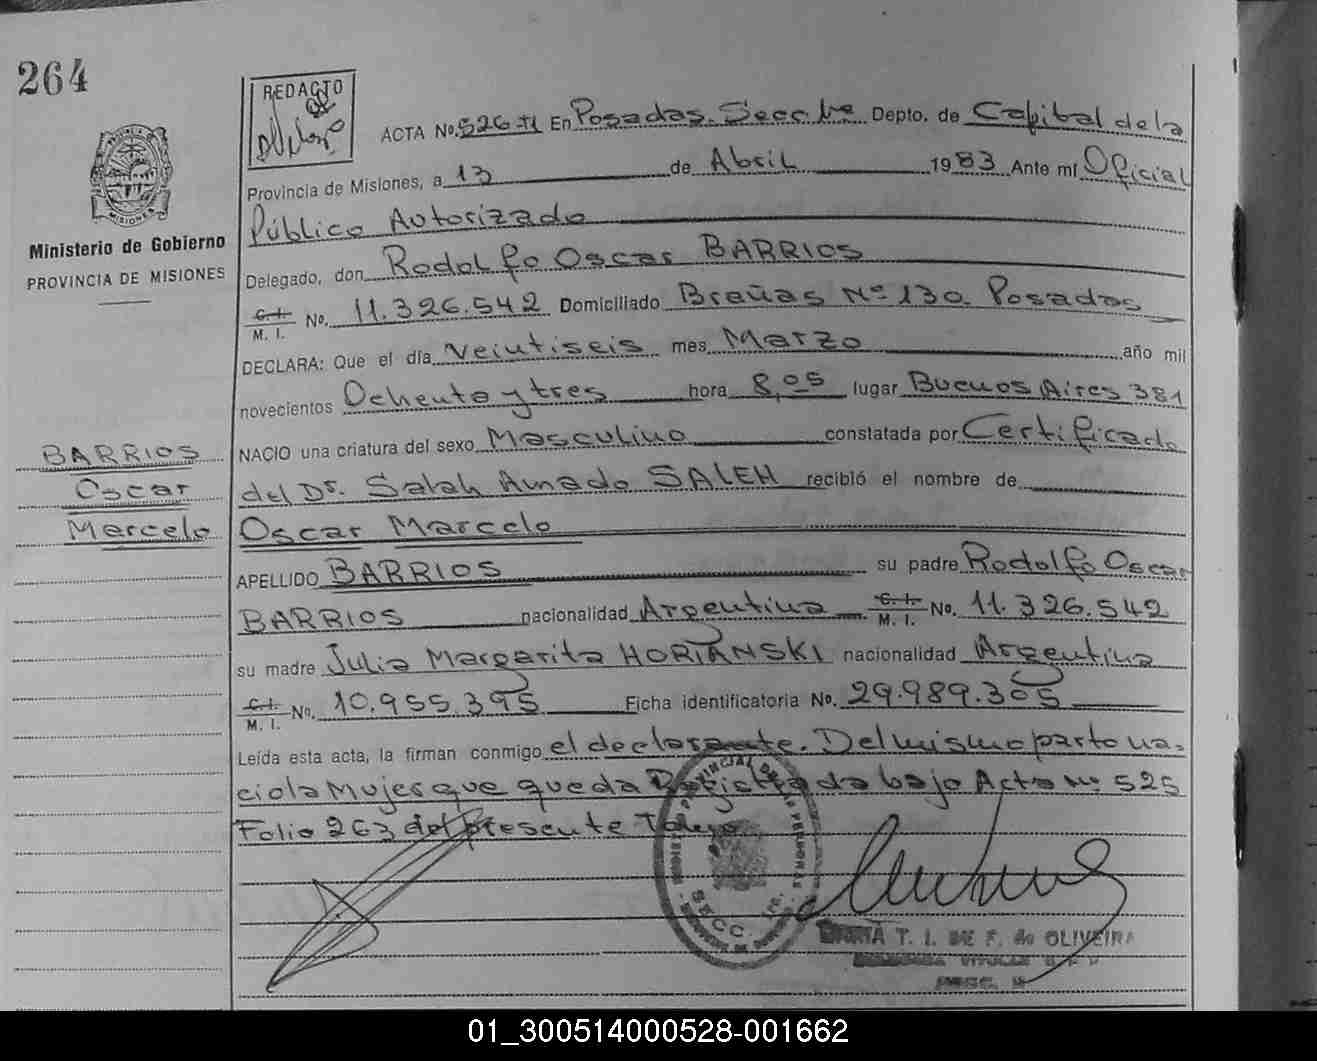 264
REDACTO
ACTA No. 526 TI En Posadas. Secc. 1ra Depto. de Capital de la
Provincia de Misiones, a 13 de Abril 1983 Ante mí Oficial
Público Autorizado
Delegado, don Rodolfo Oscar BARRIOS
C. I.
M. I. No. 11.326.542 Domiciliado Breñas Nº 130. Posadas
DECLARA: Que el día Veintiseis mes Marzo año mil
novecientos Ochenta y tres hora 8,05 lugar Buenos Aires 381
NACIO una criatura del sexo Masculino constatada por Certificado
del Dr. Salah Amado SALEH recibió el nombre de
Oscar Marcelo
APELLIDO BARRIOS su padre Rodolfo Oscar
BARRIOS nacionalidad Argentina C. I. M. I. No. 11.326.542
su madre Julia Margarita HORIANSKI nacionalidad Argentina
C. I.
M. I. No. 10.955.395 Ficha identificatoria No. 29.989.305
Leída esta acta, la firman conmigo el declarante. Del mismo parto na-
ció la Mujer que queda Registrada bajo Acta Nº 525
Folio 263 del presente Tomo
MISIONES
Ministerio de Gobierno
PROVINCIA DE MISIONES
BARRIOS
Oscar
Marcelo
PROVINCIAL DE
PERSONAS
SECC. 1ra.
MARIA T. I. DE F. de OLIVEIRA
01_300514000528-001662